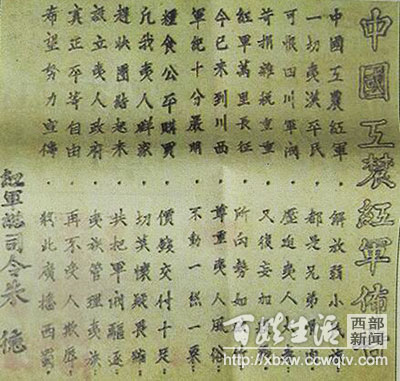 中國工农紅軍佈告
中國工农紅軍．解放弱小
一切夷漢平民．都是兄弟
可恨四川軍阀．压迫夷人太
苛捐雜税重重．又復妄加
紅軍萬里長征．所向势如
今已来到川西．尊重夷人風俗
軍紀十分严明．不動一絲一粟
糧食公平購買．價錢交付十足
凡我夷人群众．切莫懷疑畏縮
趕快團結起来．共把軍阀驅逐
設立夷人政府．夷族管理夷族
真正平等自由．再不受人欺辱
希望努力宣傳．將此廣播西蜀
紅軍總司令朱德
百姓生活
西部新聞
www.ccqtv.com/xbxw